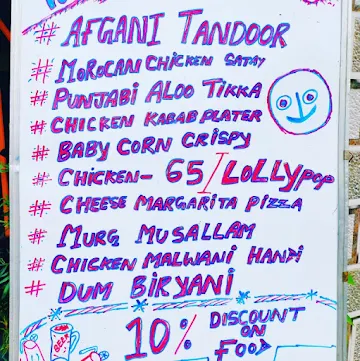 # AFGANI TANDOOR
# MOROCAN CHICKEN SATAY
# PUNJABI ALOO TIKKA
# CHICKEN KABAB PLATER
# BABY CORN CRISPY
# CHICKEN - 65 / LOLLYPOP
# CHEESE MARGARITA PIZZA
# MURG MUSALLAM
# CHICKEN MALWANI HANDI
# DUM BIRYANI
10% DISCOUNT
ON
FOOD